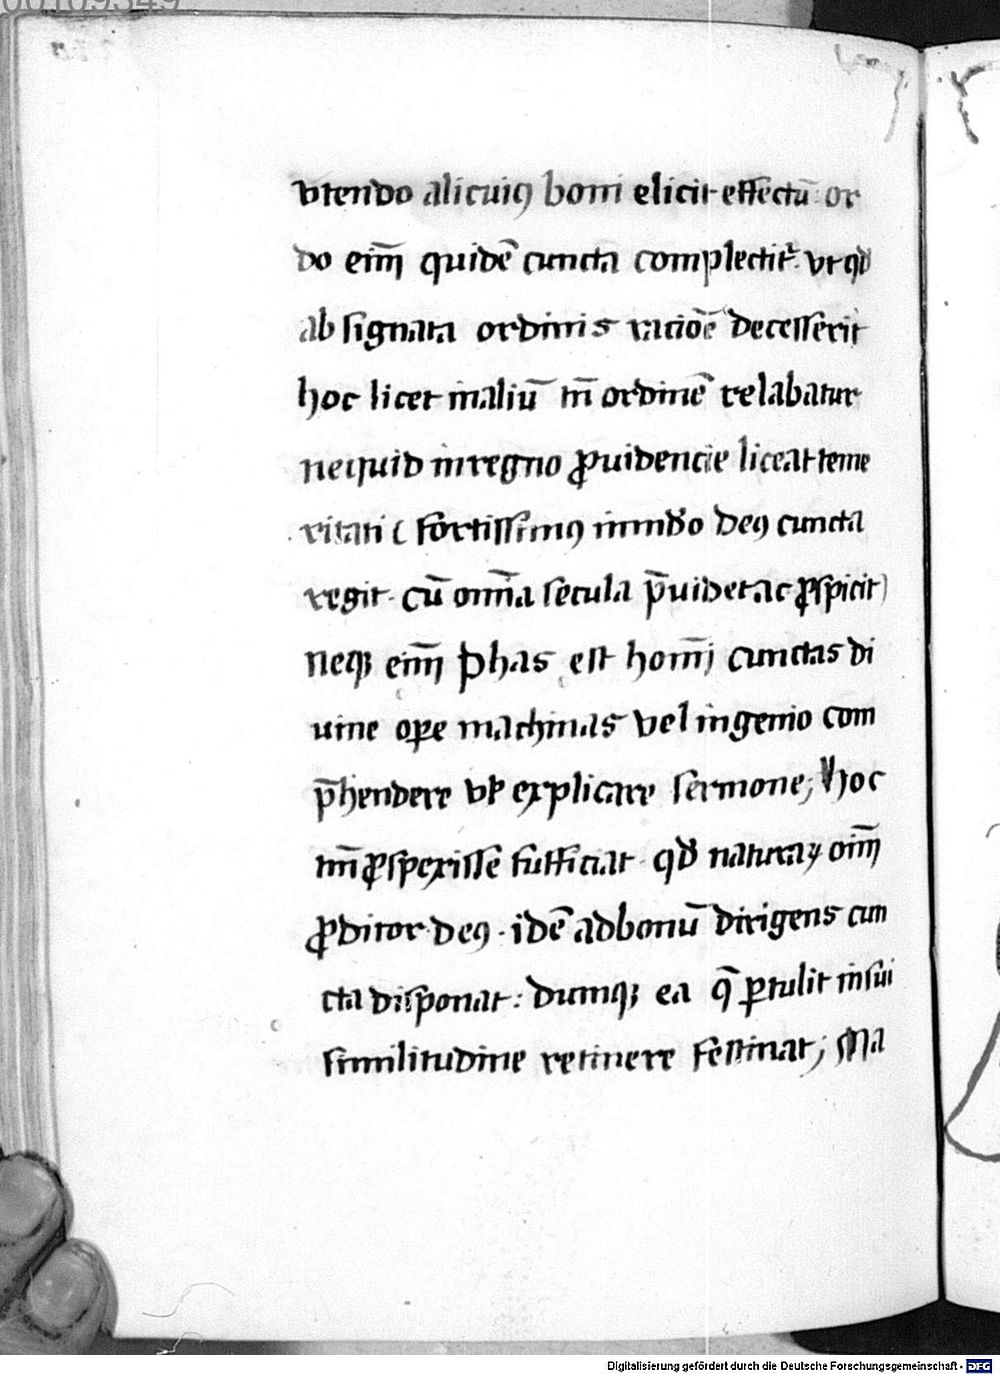 vtendo alicuiꝰ boni elicit effectū · or
do eim̄ quidē cuncta complectit᷑ · vt qd̄
ab signata ordinis racioē decesserit
hoc licet in aliū tn̄ ordinē relabatur
nequid in regno ꝓuidencie liceat teme
ritati ( fortissimꝰ in mūdo deꝰ cuncta
regit · cū omīa secula p̄uidet ac ꝓspicit )
neqꝫ eim̄ phas est homīj cunctas di
uine oꝑe machinas vel ingenio com
p̄hendere vl̓ explicare sermone; hoc
tm̄ ꝓspexisse sufficiat · qd̄ naturaꝝ oīm̄
ꝓditor deꝰ · idē ad bonū dirigens cun
cta disponat : dumqꝫ ea q̄ ꝑtulit in sui
similitudine retinere festinat; Ma
Digitalisierung gefördert durch die Deutsche Forschungsgemeinschaft - DFG